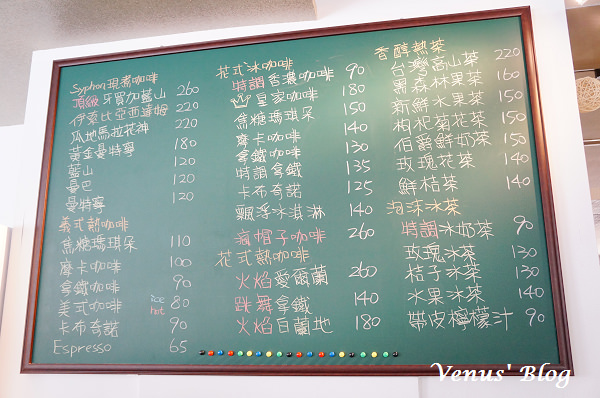 Syphon現煮咖啡
頂級牙買加藍山 260
伊索比亞西達姆 220
瓜地馬拉花神 220
黃金曼特寧 180
藍山 120
曼巴 120
曼特寧 120
義式熱咖啡
焦糖瑪琪朵 110
摩卡咖啡 100
拿鐵咖啡 90
美式咖啡 ice hot 80
卡布奇諾 90
Espresso 65
花式冰咖啡
特調香濃咖啡 90
皇家咖啡 180
焦糖瑪琪朵 150
摩卡咖啡 140
拿鐵咖啡 130
特調拿鐵 135
卡布奇諾 125
飄浮冰淇淋 140
瘋帽子咖啡 260
花式熱咖啡
火焰愛爾蘭 260
跳舞拿鐵 140
火焰白蘭地 180
香醇熱茶
台灣高山茶 220
森林果茶 160
新鮮水果茶 150
枸杞菊花茶 140
伯爵鮮奶茶 150
玫瑰花茶 140
鮮桔茶 140
泡沫冰茶
特調冰奶茶 90
玫瑰冰茶 130
桔子冰茶 130
水果冰茶 140
帶皮檸檬汁 90
Venus' Blog